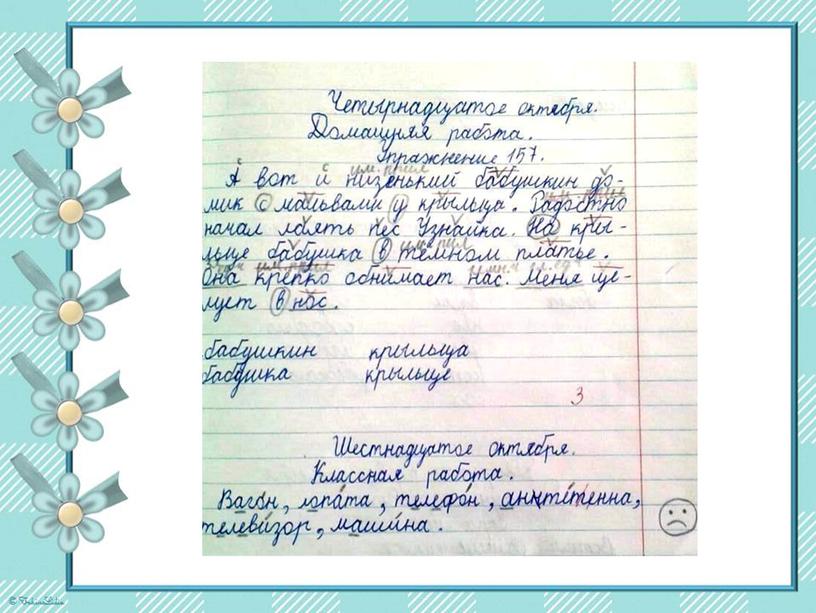 Четырнадцатое октября.
Домашняя работа.
Упражнение 157.
А вот и низенький бабушкин до-
мик с мальвами у крыльца. Радостно
начал лаять пёс Узнайка. На кры-
льце бабушка в тёмном платье.
Она крепко обнимает нас. Меня це-
лует в нос.
бабушкин крыльца
бабушка крыльце
3
Шестнадцатое октября.
Классная работа.
Вагон, лопата, телефон,
телевизор, машина.